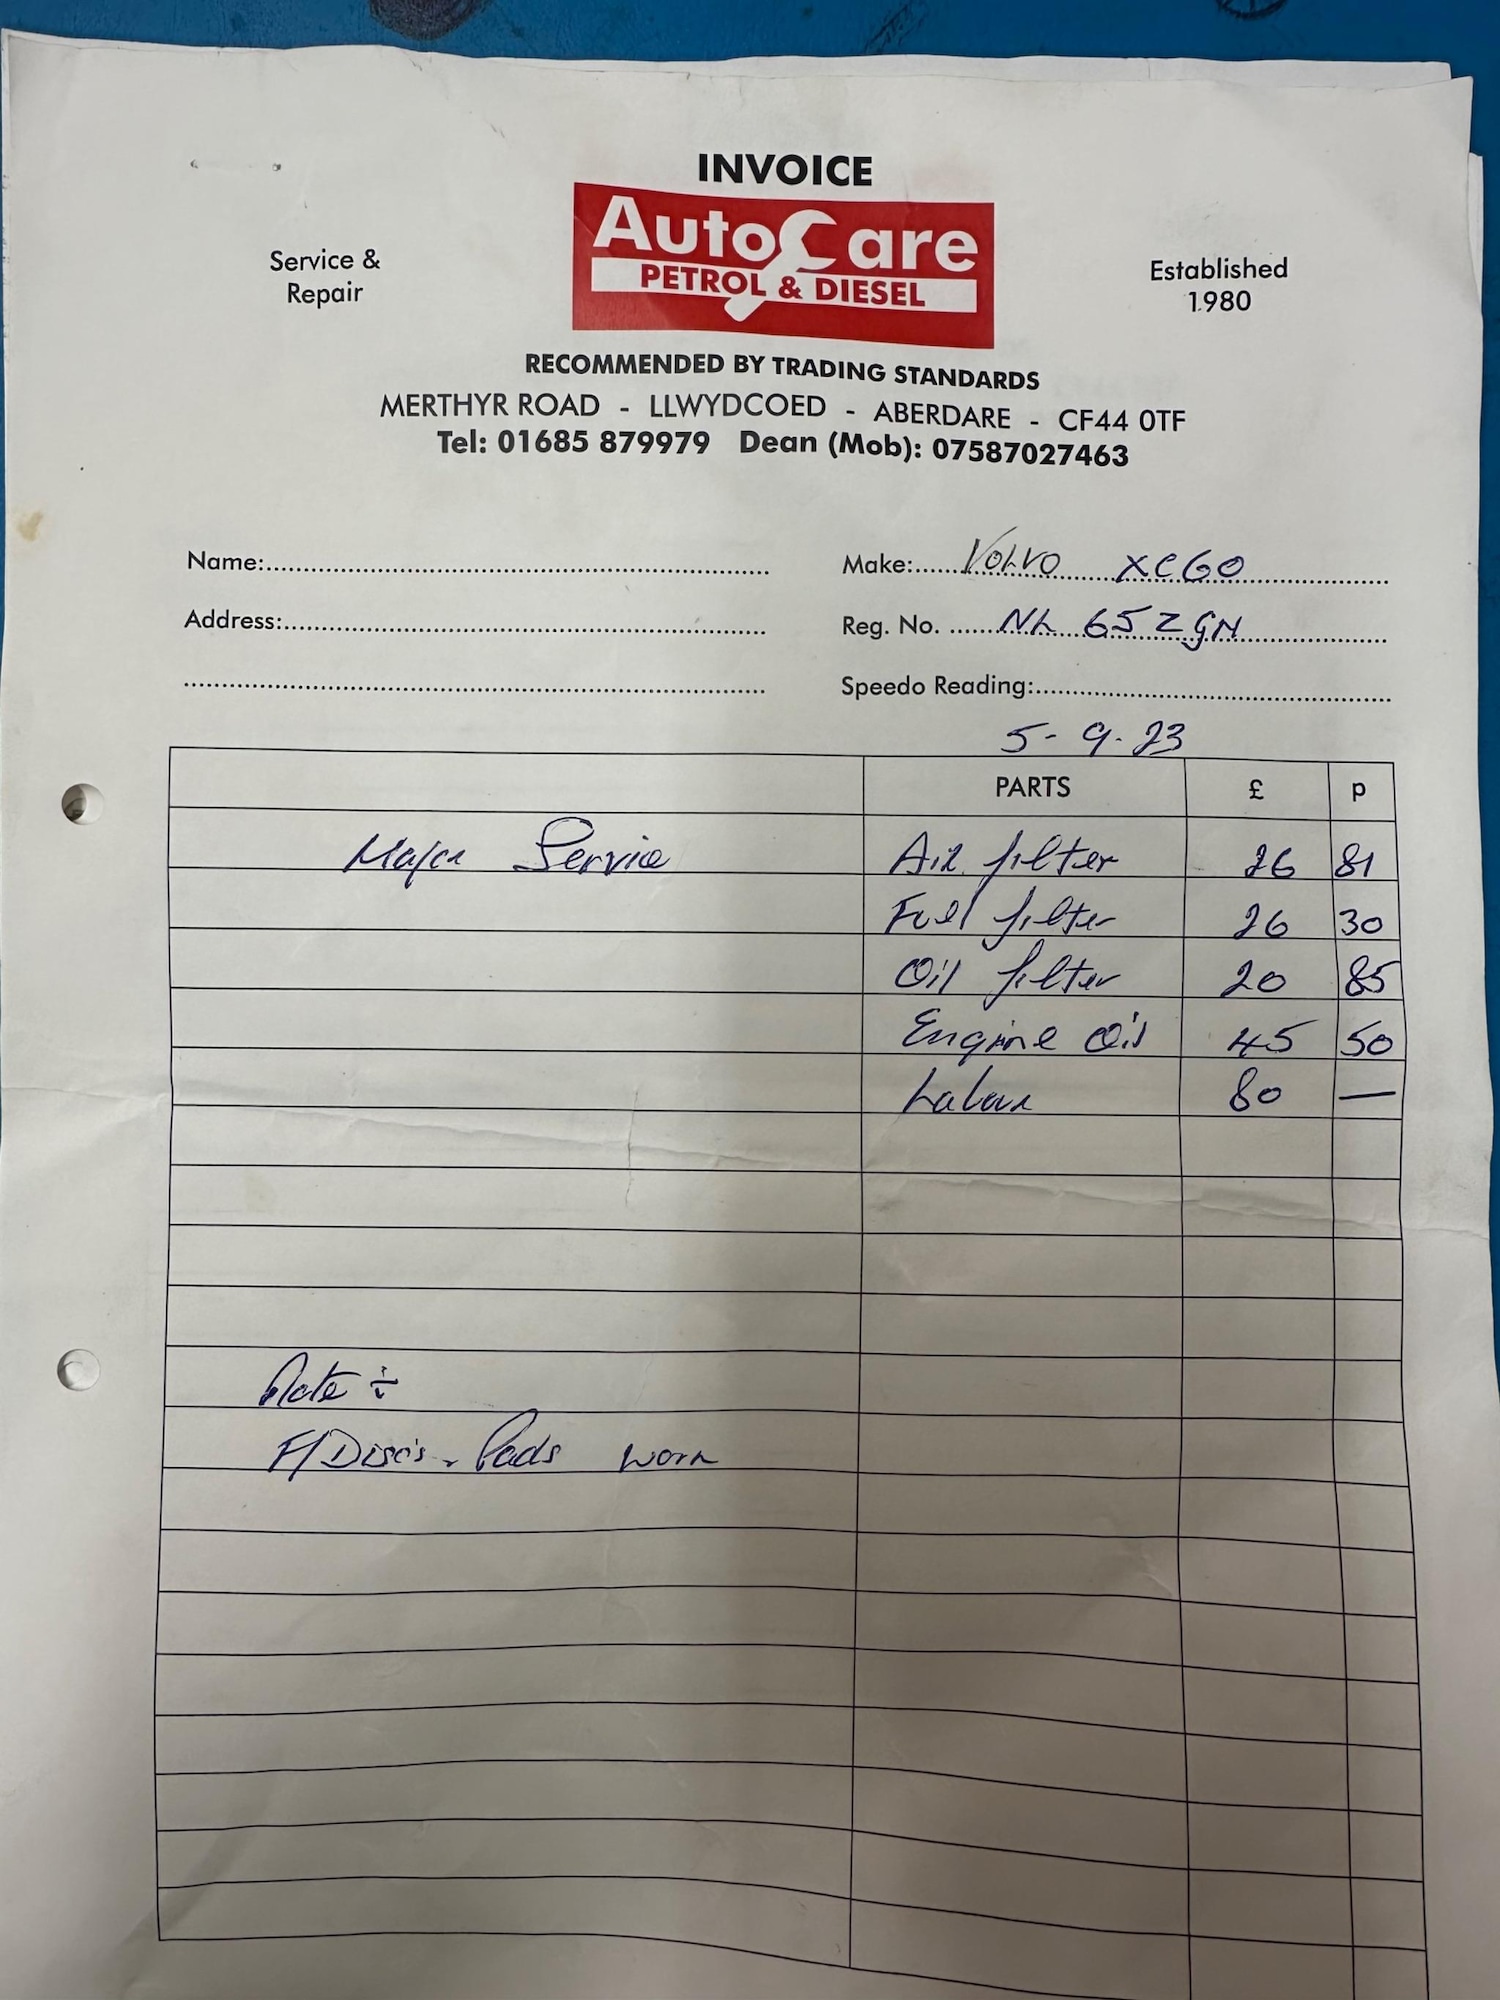 INVOICE
AutoCare
PETROL & DIESEL
Service &
Repair
Established
1980
RECOMMENDED BY TRADING STANDARDS
MERTHYR ROAD - LLWYDCOED - ABERDARE - CF44 0TF
Tel: 01685 879979 Dean (Mob): 07587027463
Name:
Make: VOLVO XC60
Address:
Reg. No. NL 65 ZGN
Speedo Reading:
5-9.23
PARTS £ p
Major Service Air filter 26 81
Fuel filter 26 30
Oil filter 20 85
Engine Oil 45 50
Labour 80 —
Note ÷
F/Disc's + Pads worn